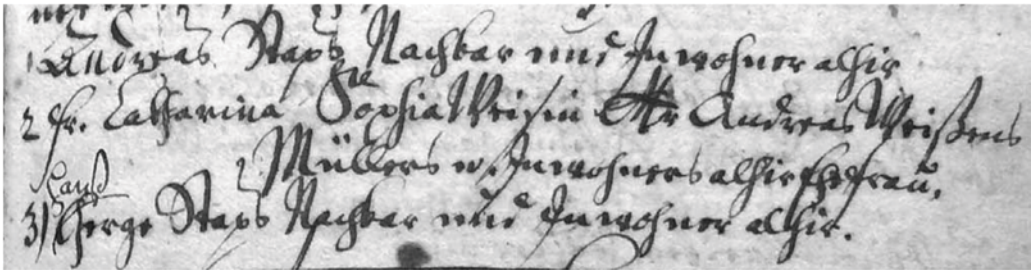 1 Andreas Staps Nachbar und Inwohner alhir
2 Fr. Catharina Sophia Weisin Mr Andreas Weißens
Müllers u. Inwohners alhir Ehefrau.
Hanß
3) Gerge Staps Nachbar und Inwohner alhir.